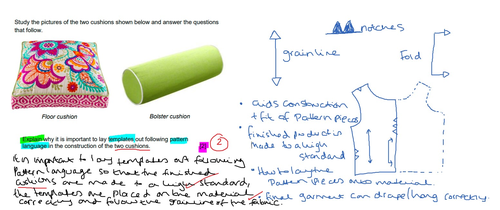 Study the pictures of the two cushions shown below and answer the questions
that follow.
Floor cushion
Bolster cushion
Explain why it is important to lay templates out following pattern
language in the construction of the two cushions.
2
It is important to lay templates out following
Pattern language so that the finished
cushions are made to a high standard,
the templates are placed on the material
correctly and follow the grainline of the fabric.
notches
grainline
Fold
• Aids construction
+ fit of pattern pieces
• finished product is
made to a high
standard
• How to lay the
Pattern pieces onto material.
• Final garment can drape/hang correctly